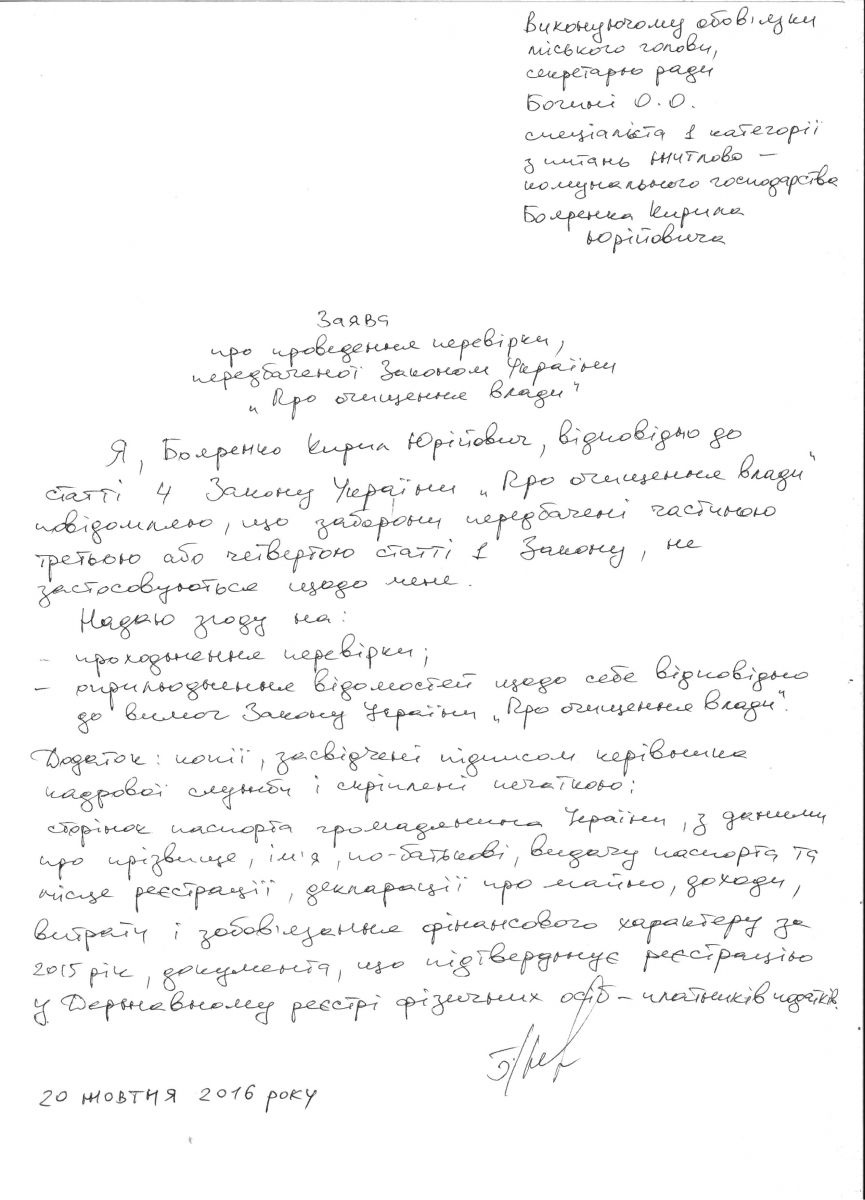 Виконуючому обов'язки
міського голови,
секретарю ради
Богині О.О.
спеціаліста 1 категорії
з питань житлово –
комунального господарства
Бояренка Кирила
Юрійовича
Заява
про проведення перевірки,
передбаченої Законом України
„Про очищення влади"
Я, Бояренко Кирил Юрійович, відповідно до
статті 4 Закону України „Про очищення влади"
повідомляю, що заборони передбачені частиною
третьою або четвертою статті 1 Закону, не
застосовуються щодо мене.
Надаю згоду на:
– проходження перевірки;
– оприлюднення відомостей щодо себе відповідно
до вимог Закону України „Про очищення влади".
Додаток: копії, засвідчені підписом керівника
кадрової служби і скріплені печаткою:
сторінок паспорта громадянина України, з даними
про прізвище, ім'я, по-батькові, видачу паспорта та
місце реєстрації, декларації про майно, доходи,
витрати і зобов'язання фінансового характеру за
2015 рік, документа, що підтверджує реєстрацію
у Державному реєстрі фізичних осіб – платників податків.
20 жовтня 2016 року